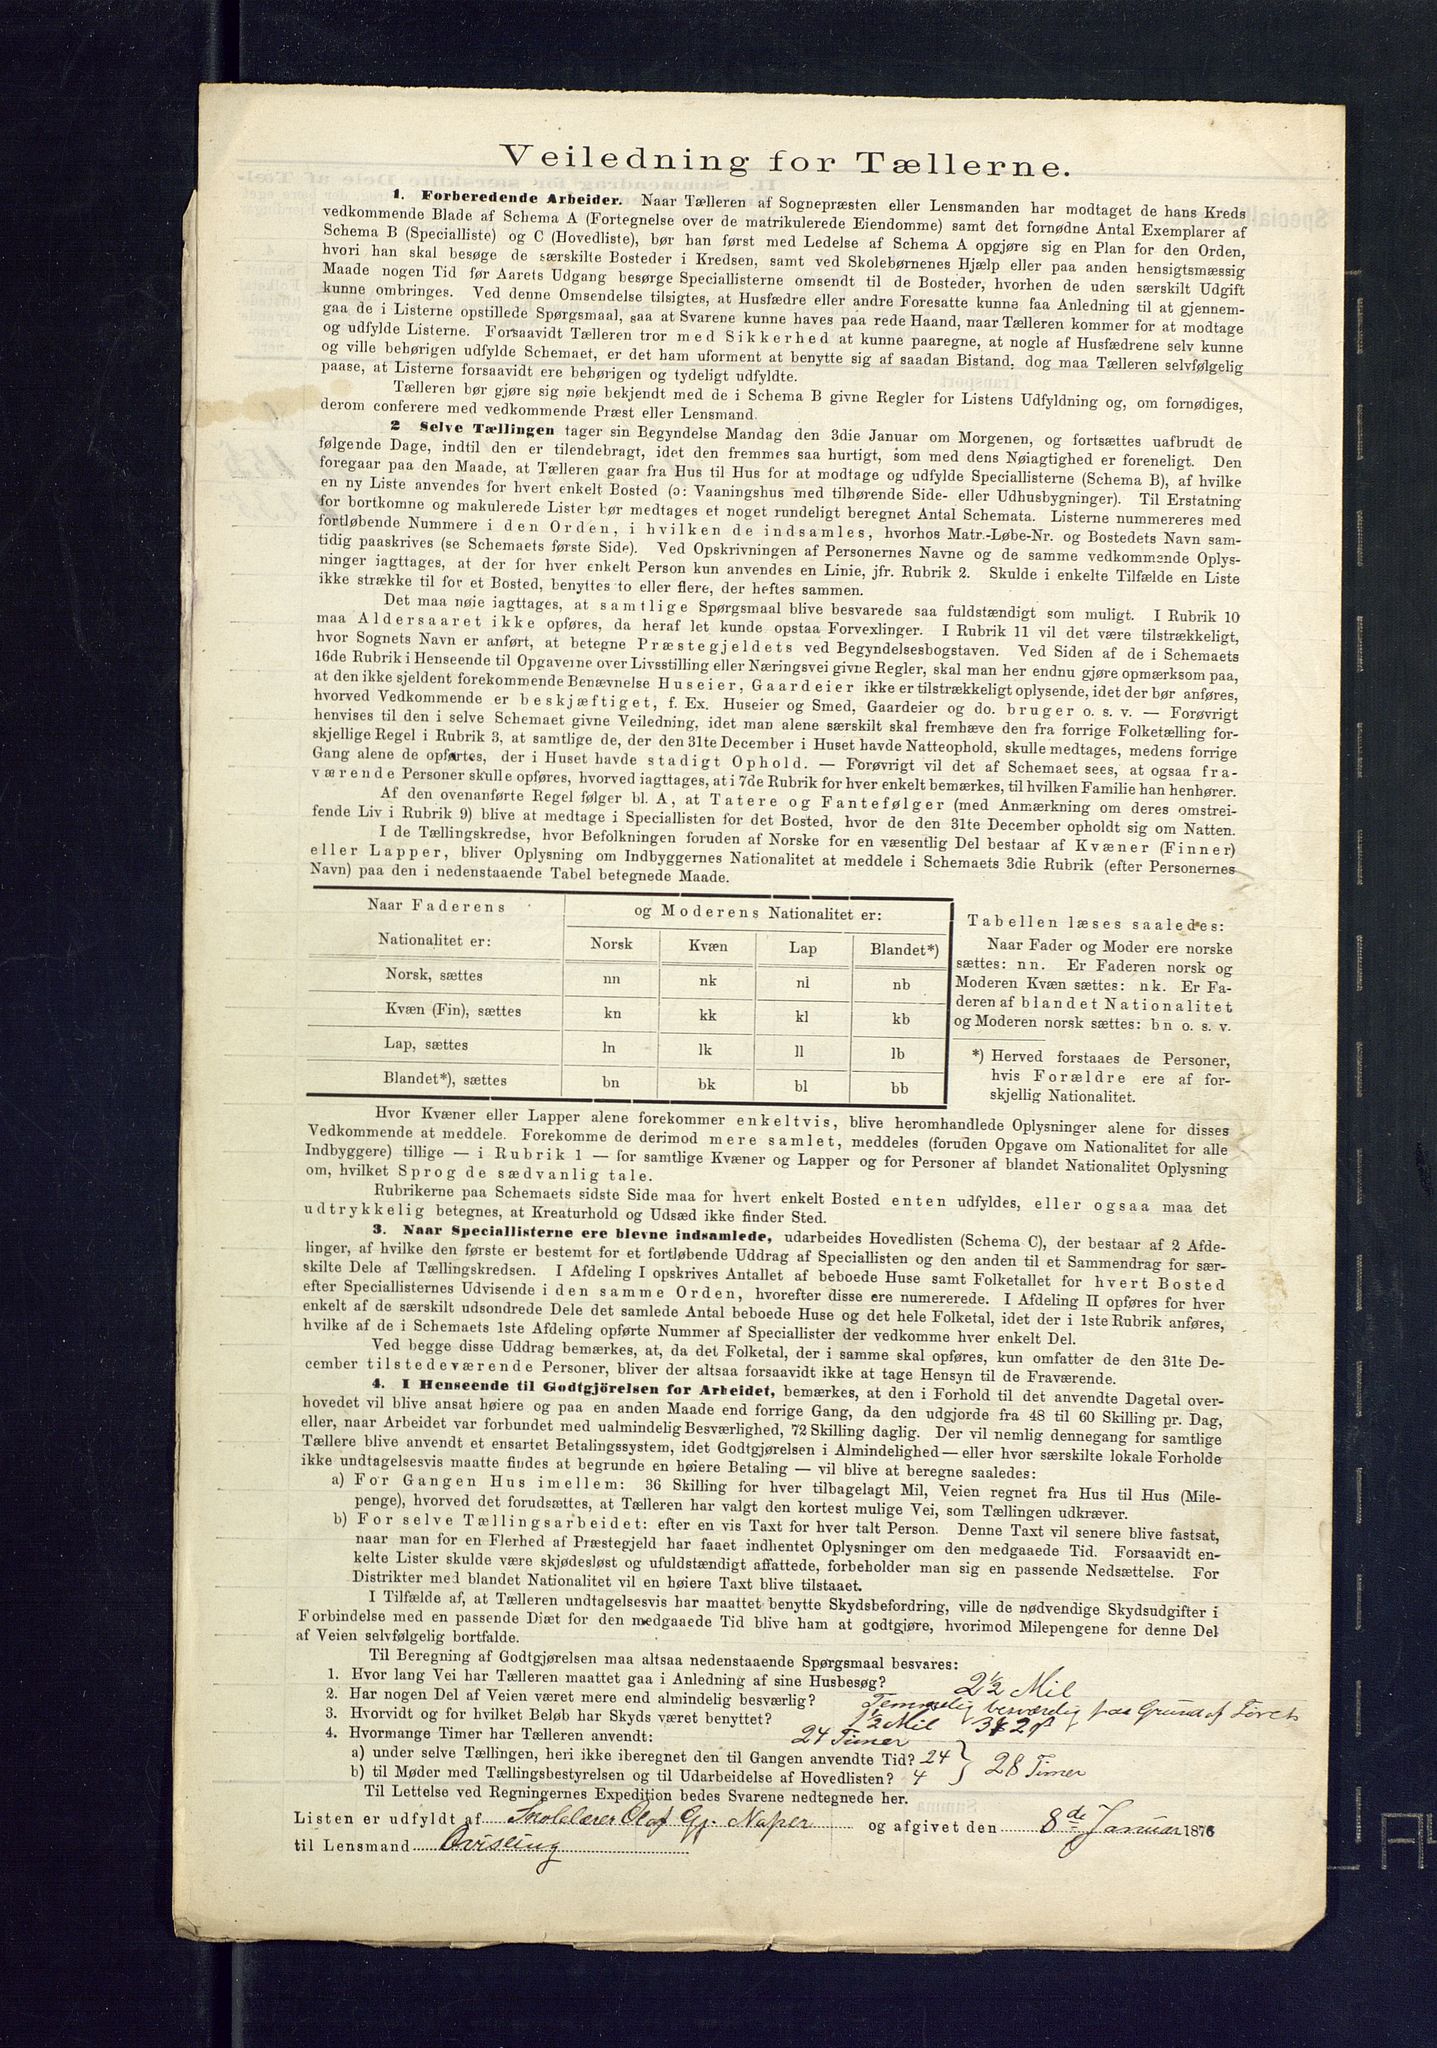 Veiledning for Tællerne.
1. Forberedende Arbeider. Naar Tælleren af Sognepræsten eller Lensmanden har modtaget de hans Kreds
vedkommende Blade af Schema A (Fortegnelse over de matrikulerede Eiendomme) samt det fornødne Antal Exemplarer af
Schema B (Specialliste) og C (Hovedliste), bør han først med Ledelse af Schema A opgjøre sig en Plan for den Orden,
hvori han skal besøge de særskilte Bosteder i Kredsen, samt ved Skolebørnenes Hjælp eller paa anden hensigtsmæssig
Maade nogen Tid før Aarets Udgang besørge Speciallisterne omsendt til de Bosteder, hvorhen de uden særskilt Udgift
kunne ombringes. Ved denne Omsendelse tilsigtes, at Husfædre eller andre Foresatte kunne faa Anledning til at gjennem-
gaa de i Listerne opstillede Spørgsmaal, saa at Svarene kunne haves paa rede Haand, naar Tælleren kommer for at modtage
og udfylde Listerne. Forsaavidt Tælleren tror med Sikkerhed at kunne paaregne, at nogle af Husfædrene selv kunne
og ville behørigen udfylde Schemaet, er det ham uforment at benytte sig af saadan Bistand, dog maa Tælleren selvfølgelig
paase, at Listerne forsaavidt ere behørigen og tydeligt udfyldte.
Tælleren bør gjøre sig nøie bekjendt med de i Schema B givne Regler for Listens Udfyldning og, om fornødiges,
derom conferere med vedkommende Præst eller Lensmand.
2 Selve Tællingen tager sin Begyndelse Mandag den 3die Januar om Morgenen, og fortsættes uafbrudt de
følgende Dage, indtil den er tilendebragt, idet den fremmes saa hurtigt, som med dens Nøiagtighed er foreneligt. Den
foregaar paa den Maade, at Tælleren gaar fra Hus til Hus for at modtage og udfylde Speciallisterne (Schema B), af hvilke
en ny Liste anvendes for hvert enkelt Bosted (ɔ: Vaaningshus med tilhørende Side- eller Udhusbygninger). Til Erstatning
for bortkomne og makulerede Lister bør medtages et noget rundeligt beregnet Antal Schemata. Listerne nummereres med
fortløbende Nummere i den Orden, i hvilken de indsamles, hvorhos Matr.-Løbe-Nr. og Bostedets Navn sam-
tidig paaskrives (se Schemaets første Side). Ved Opskrivningen af Personernes Navne og de samme vedkommende Oplys-
ninger iagttages, at der for hver enkelt Person kun anvendes en Linie, jfr. Rubrik 2. Skulde i enkelte Tilfælde en Liste
ikke strække til for et Bosted, benyttes to eller flere, der heftes sammen.
Det maa nøie iagttages, at samtlige Spørgsmaal blive besvarede saa fuldstændigt som muligt. I Rubrik 10
maa Aldersaaret ikke opføres, da heraf let kunde opstaa Forvexlinger. I Rubrik 11 vil det være tilstrækkeligt,
hvor Sognets Navn er anført, at betegne Præstegjeldets ved Begyndelsesbogstaven. Ved Siden af de i Schemaets
16de Rubrik i Henseende til Opgaverne over Livsstilling eller Næringsvei givne Regler, skal man her endnu gjøre opmærksom paa,
at den ikke sjeldent forekommende Benævnelse Huseier, Gaardeier ikke er tilstrækkeligt oplysende, idet der bør anføres,
hvorved Vedkommende er beskjæftiget, f. Ex. Huseier og Smed, Gaardeier og do. bruger o. s. v. — Forøvrigt
henvises til den i selve Schemaet givne Veiledning, idet man alene særskilt skal fremhæve den fra forrige Folketælling for-
skjellige Regel i Rubrik 3, at samtlige de, der den 31te December i Huset havde Natteophold, skulle medtages, medens forrige
Gang alene de opførtes, der i Huset havde stadigt Ophold. — Forøvrigt vil det af Schemaet sees, at ogsaa fra-
værende Personer skulle opføres, hvorved iagttages, at i 7de Rubrik for hver enkelt bemærkes, til hvilken Familie han henhører.
Af den ovenanførte Regel følger bl. A, at Tatere og Fantefølger (med Anmærkning om deres omstrei-
fende Liv i Rubrik 9) blive at medtage i Speciallisten for det Bosted, hvor de den 31te December opholdt sig om Natten.
I de Tællingskredse, hvor Befolkningen foruden af Norske for en væsentlig Del bestaar af Kvæner (Finner)
eller Lapper, bliver Oplysning om Indbyggernes Nationalitet at meddele i Schemaets 3die Rubrik (efter Personernes
Navn) paa den i nedenstaaende Tabel betegnede Maade.
Naar Faderens og Moderens Nationalitet er:
Nationalitet er: Norsk Kvæn Lap Blandet*)
Norsk, sættes nn nk nl nb
Kvæn (Fin), sættes kn kk kl kb
Lap, sættes ln lk ll lb
Blandet*), sættes bn bk bl bb
Tabellen læses saaledes:
Naar Fader og Moder ere norske
sættes: nn. Er Faderen norsk og
Moderen Kvæn sættes: nk. Er Fa-
deren af blandet Nationalitet
og Moderen norsk sættes: bn o. s. v.
*) Herved forstaaes de Personer,
hvis Forældre ere af for-
skjellig Nationalitet.
Hvor Kvæner eller Lapper alene forekommer enkeltvis, blive heromhandlede Oplysninger alene for disses
Vedkommende at meddele. Forekomme de derimod mere samlet, meddeles (foruden Opgave om Nationalitet for alle
Indbyggere) tillige — i Rubrik 1 — for samtlige Kvæner og Lapper og for Personer af blandet Nationalitet Oplysning
om, hvilket Sprog de sædvanlig tale.
Rubrikerne paa Schemaets sidste Side maa for hvert enkelt Bosted enten udfyldes, eller ogsaa maa det
udtrykkelig betegnes, at Kreaturhold og Udsæd ikke finder Sted.
3. Naar Speciallisterne ere blevne indsamlede, udarbeides Hovedlisten (Schema C), der bestaar af 2 Afde-
linger, af hvilke den første er bestemt for et fortløbende Uddrag af Speciallisten og den anden til et Sammendrag for sær-
skilte Dele af Tællingskredsen. I Afdeling I opskrives Antallet af beboede Huse samt Folketallet for hvert Bosted
efter Speciallisternes Udvisende i den samme Orden, hvorefter disse ere numererede. I Afdeling II opføres for hver
enkelt af de særskilt udsondrede Dele det samlede Antal beboede Huse og det hele Folketal, idet der i 1ste Rubrik anføres,
hvilke af de i Schemaets 1ste Afdeling opførte Nummer af Speciallister der vedkomme hver enkelt Del.
Ved begge disse Uddrag bemærkes, at, da det Folketal, der i samme skal opføres, kun omfatter de den 31te De-
cember tilstedeværende Personer, bliver der altsaa forsaavidt ikke at tage Hensyn til de Fraværende.
4. I Henseende til Godtgjörelsen for Arbeidet, bemærkes, at den i Forhold til det anvendte Dagetal over-
hovedet vil blive ansat høiere og paa en anden Maade end forrige Gang, da den udgjorde fra 48 til 60 Skilling pr. Dag,
eller, naar Arbeidet var forbundet med ualmindelig Besværlighed, 72 Skilling daglig. Der vil nemlig dennegang for samtlige
Tællere blive anvendt et ensartet Betalingssystem, idet Godtgjørelsen i Almindelighed — eller hvor særskilte lokale Forholde
ikke undtagelsesvis maatte findes at begrunde en høiere Betaling — vil blive at beregne saaledes:
a) For Gangen Hus imellem: 36 Skilling for hver tilbagelagt Mil, Veien regnet fra Hus til Hus (Mile-
penge), hvorved det forudsættes, at Tælleren har valgt den kortest mulige Vei, som Tællingen udkræver.
b) For selve Tællingsarbeidet: efter en vis Taxt for hver talt Person. Denne Taxt vil senere blive fastsat,
naar man for en Flerhed af Præstegjeld har faaet indhentet Oplysninger om den medgaaede Tid. Forsaavidt en-
kelte Lister skulde være skjødesløst og ufuldstændigt affattede, forbeholder man sig en passende Nedsættelse. For
Distrikter med blandet Nationalitet vil en høiere Taxt blive tilstaaet.
I Tilfælde af, at Tælleren undtagelsesvis har maattet benytte Skydsbefordring, ville de nødvendige Skydsudgifter i
Forbindelse med en passende Diæt for den medgaaede Tid blive ham at godtgjøre, hvorimod Milepengene for denne Del
af Veien selvfølgelig bortfalde.
Til Beregning af Godtgjørelsen maa altsaa nedenstaaende Spørgsmaal besvares:
1. Hvor lang Vei har Tælleren maattet gaa i Anledning af sine Husbesøg? 2½ Mil
2. Har nogen Del af Veien været mere end almindelig besværlig? Temmelig besværlig paa Grund af Føret
3. Hvorvidt og for hvilket Beløb har Skyds været benyttet? 1½ Mil
4. Hvormange Timer har Tælleren anvendt: 24 Timer
a) under selve Tællingen, heri ikke iberegnet den til Gangen anvendte Tid? 24
b) til Møder med Tællingsbestyrelsen og til Udarbeidelse af Hovedlisten? 4 } 28 Timer
Til Lettelse ved Regningernes Expedition bedes Svarene nedtegnede her.
Listen er udfyldt af Skolelærer Olaf Gj. Naper og afgivet den 8de Januar 1876
til Lensmand Qvisling